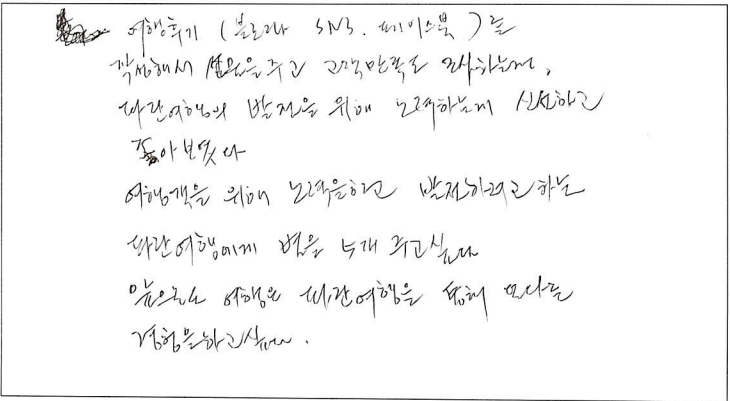 여행후기 (블로그와 SNS. 페이스북) 를
작성해서 을주고 고객만족도 조사하는게,
파란여행의 발전을 위해 노력하는게 신선하고
좋아보였다
여행객을 위해 노력을하고 발전하려고하는
파란여행에게 별을 5개 주고싶다
앞으로도 여행은 파란여행을 통해 또다른
경험을하고싶다.